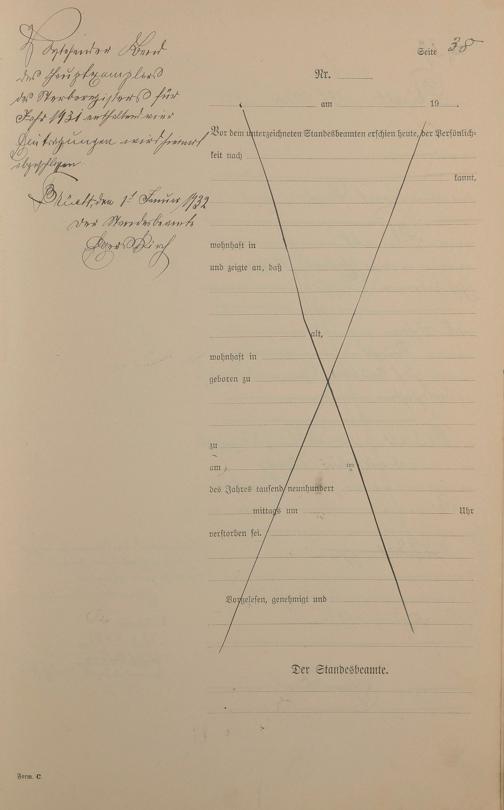 Seite 38
Vorstehender Band
des Hauptexemplars
des Sterberegisters für
Jahr 1931 enthaltend vier
Eintragungen wird hiermit
abgeschlossen
den 1t Januar 1932
Der Standesbeamte
Nr.
am 19
Vor dem unterzeichneten Standesbeamten erschien heute, der Persönlich-
keit nach
kannt,
wohnhaft in
und zeigte an, daß
alt,
wohnhaft in
geboren zu
zu
am
des Jahres tausend neunhundert
mittags um Uhr
verstorben sei.
Vorgelesen, genehmigt und
Der Standesbeamte.
Form. C.